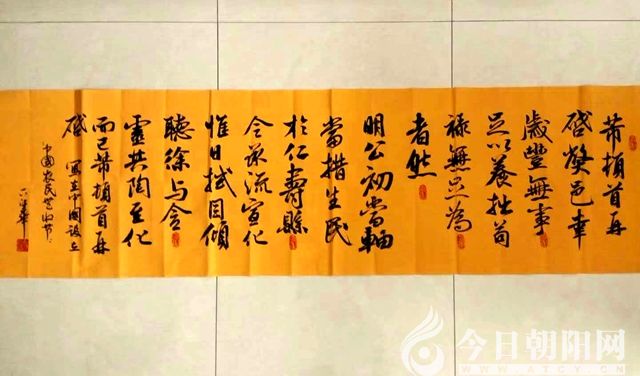 芾頓首再
啓弊邑幸
歲豐無事
足以養拙苟
祿無足為
者然
明公初當軸
當措生民
於仁壽縣
令承流宣化
惟日拭目傾
聽徐與含
靈共陶至化
而已芾頓首再
啓
寫在中國設立
中國農民豐收节
今日朝阳网
WWW.ATCY.CN